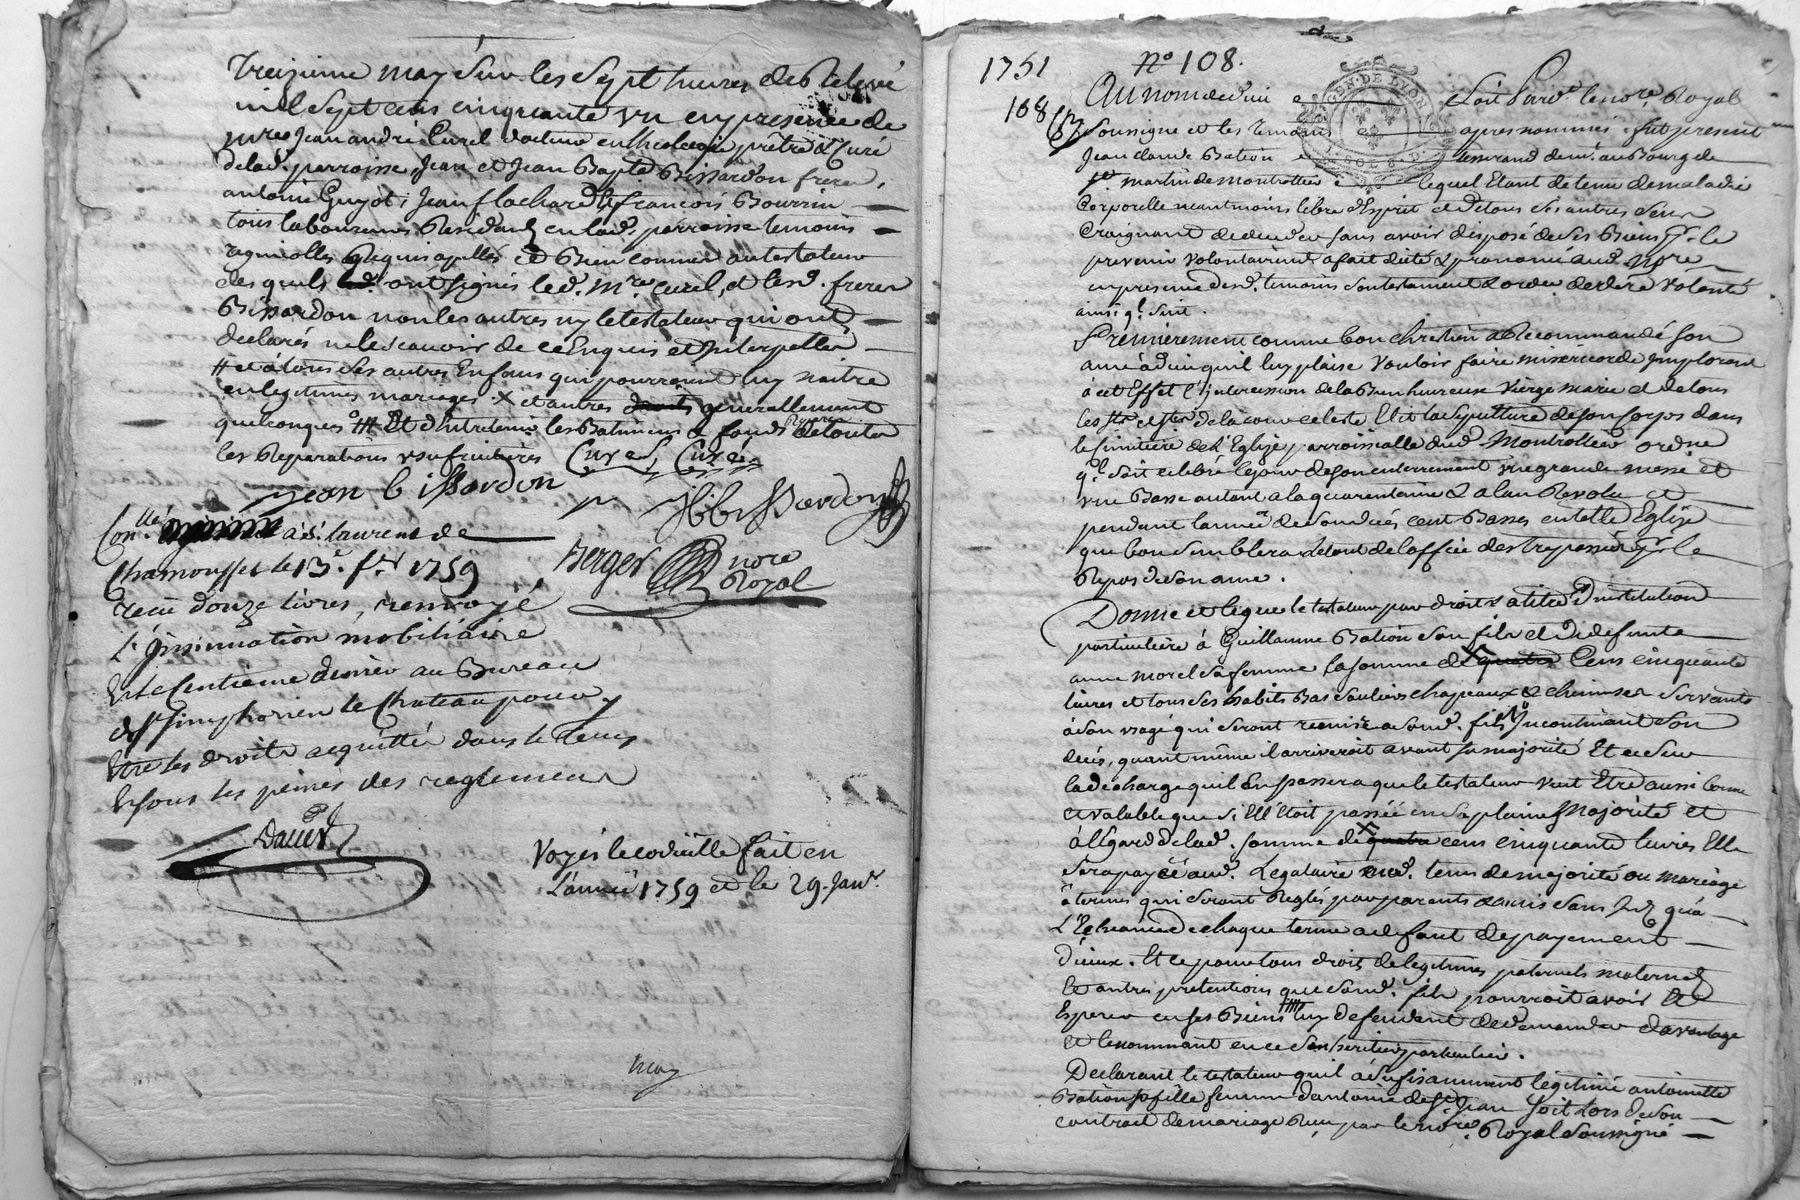 treizieme may sur les sept heures de Relevé
mil sept cens cinquante un en presence de
mre Jean andré Curel docteur en theologie prêtre & Curé
de lad. parroisse, Jean et Jean Bapte Bissardon freres,
antoine Guyot, Jean flachard & francois Bourrin
tous laboureurs Residents en lad. parroisse temoins
requis apellés et Bien connu au testateur
desquels ont signés led. mre Curel, et lesd. freres
Bissardon non les autres ny le testateur qui ont
declarés ne le scavoir de ce Enquis et Interpellés
# et à tous ses autres Enfans qui pourroient luy naitre
en legitimes mariages. X et autres droits generallement
quelconques #Et d'Entretenir les Batimens à fonds de toutes
les Reparations usufruitieres Curel, Curé,
Jean bissardon JB bissardon
Conllé à st. laurent de
Chamousset le 13e. fer 1759
Berger nore
Royal
recu douze livres, renvoyé
L'insinuation mobiliaire
Et le Centieme denier au Bureau
de st simphorien le Chateau pour y
Etre les droits acquittés dans le tems
Et sous les peines des reglemens
Voyés le codicille fait en
L'année 1759 et le 29. Janv.
may
1751 No 108.
108
GEN. DE LYON
Au nom de dieu soit Pard. le nore. Royal
soussigné et les temoins apres nommés. fut present
Jean claude Bation tisserand demt. au Bourg de
st. martin de montrottier lequel Etant detenu de maladie
Corporelle neantmoins libre d'Esprit et de tous ses autres sens
Craignant de deceder sans avoir disposé de ses Biens pr. le
prevenir volontairement a fait dicté & prononcé aud. Nore
en presence desd. temoins son testament & ordre de derniere volonté
ainsi q. suit.
Premierement comme bon chretien a Recommandé son
ame à dieu qu'il luy plaise vouloir faire misericorde Implorant
à cet Effet l'Intercession de la Bien heureuse vierge marie et de tous
les sts et stes de la cour celeste Elit la sepulture de son Corps dans
le cimitiere de l'Eglise parroissialle dud. Montrottier ordne
q. soit celebré le jour de son enterrement une grande messe et
une Basse autant a la quarentaine & a l'an Revolu et
pendant l'année de son decés cent Basses en telle Eglise
que bon semblera le tout de l'office des trepassés pr. le
Repos de son ame.
Donne et legue le testateur par droit & a titre d'institution
particuliere à Guillaume Bation son fils et de defunte
anne morel sa femme la somme de X quatre Cens cinquante
livres et tous ses habits Bas souliers chapeaux & chemises servants
à son usage qui seront remise a sond. fils Incontinant son
decés, quant même il arriveroit avant sa majorité Et ce sur
la decharge qu'il En passera que le testateur veut Etre aussi bonne
et valable que si Elle Etoit passée en sa plaine majorité et
à l'Egard de lad. somme de X quatre cens cinquante livres Elle
sera payée aud. Legataire aud. tems de majorité ou mariage
à termes qui seront Reglés par parents & amis sans qu'à
L'Echeance de chaque terme a defaut de payement
d'iceux. Et ce pour tous droits de legitimes paternels maternels
Et autres pretentions que sond. fils pourroit avoir Et
Esperer en ses Biens luy defendant de demander davantage
et le nommant en ce son heritier particulier.
Declarant le testateur qu'il a sufisamment légitimé antoinette
Bation sa fille femme d'antoine de st. Jean soit Lors de son
contract de mariage Recu par le nore. Royal soussigné